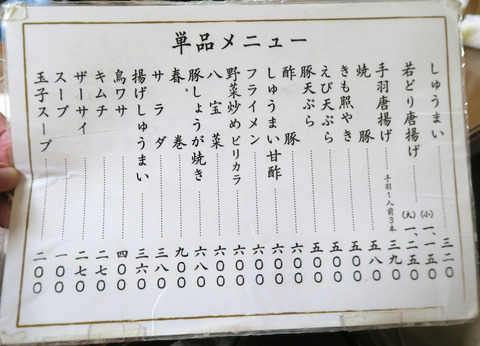 単品メニュー
しゅうまい……三二〇
若どり唐揚げ……(小)一、一五〇
(大)一、二五〇
手羽唐揚げ 手羽1人前3本……三九〇
焼豚……五八〇
きも照やき……五〇〇
えび天ぷら……五〇〇
豚天ぷら……五〇〇
酢豚……六〇〇
しゅうまい甘酢……六〇〇
フライメン……六〇〇
野菜炒めピリカラ……六〇〇
八宝菜……六〇〇
豚しょうが焼き……六八〇
春巻……九〇
サラダ……三八〇
揚げしゅうまい……三六〇
鳥ワサ……四〇〇
キムチ……二七〇
ザーサイ……二七〇
スープ……一〇〇
玉子スープ……二〇〇